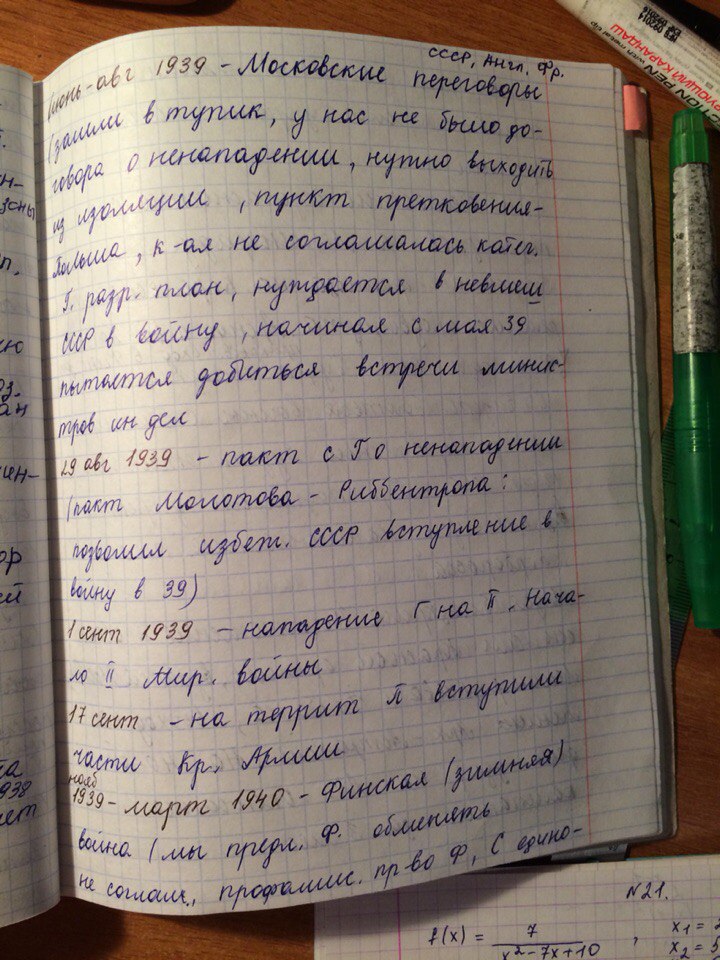 СССР, Англ, Фр.
Июнь-авг 1939 - Московские переговоры
(зашли в тупик, у нас не было до-
говора о ненападении, нужно выходить
из изоляции, пункт претковения-
Польша, к-ая не соглашалась катег.
Г. разр. план, нуждается в невмеш
СССР в войну, начиная с мая 39
пытается добиться встречи минис-
тров ин дел
29 авг 1939 - пакт с Г о ненападении
(пакт Молотова - Риббентропа:
позволил избеж. СССР вступление в
войну в 39)
1 сент 1939 - нападение Г на П. Нача-
ло II Мир. войны
17 сент - на террит П вступили
части Кр. Армии
нояб
1939 - март 1940 - Финская (зимняя)
война (мы предл. Ф. обменять
не соглаш., профашис. пр-во Ф, С одно-
ен-
зоны
ю
ан
ен-
ор
ей
та
1938
ает
N21.
f(x) = 7 / x²-7x+10 ,
x₁ =
x₂ = 5